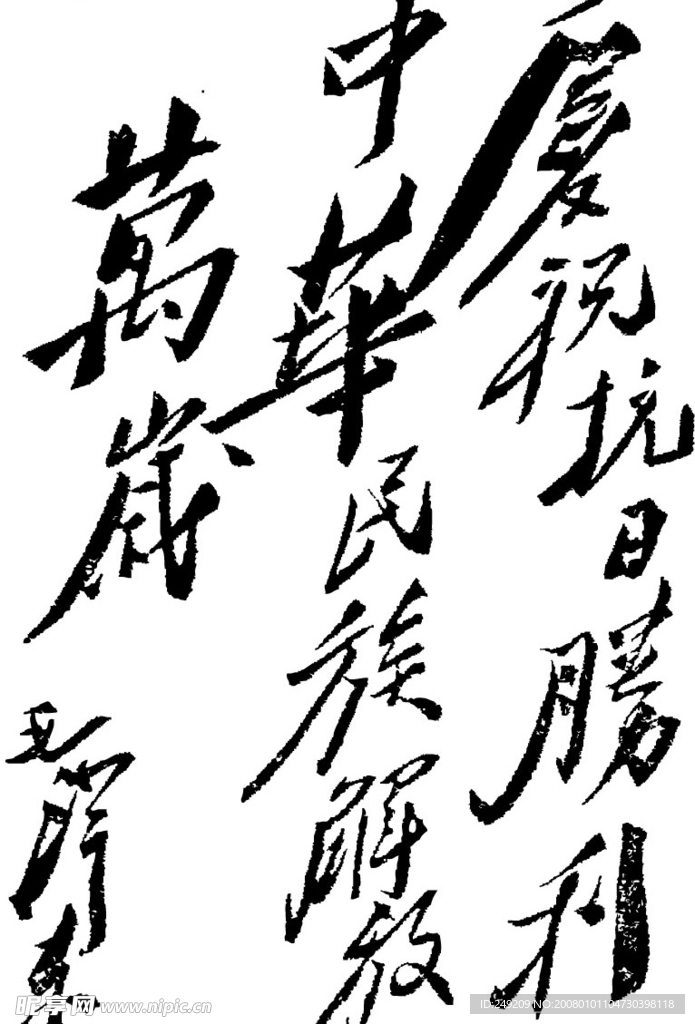 慶祝抗日勝利
中華民族解放
萬歲
毛澤東
昵享网 www.nipic.cn
ID:249209 NO:20080101104730398118